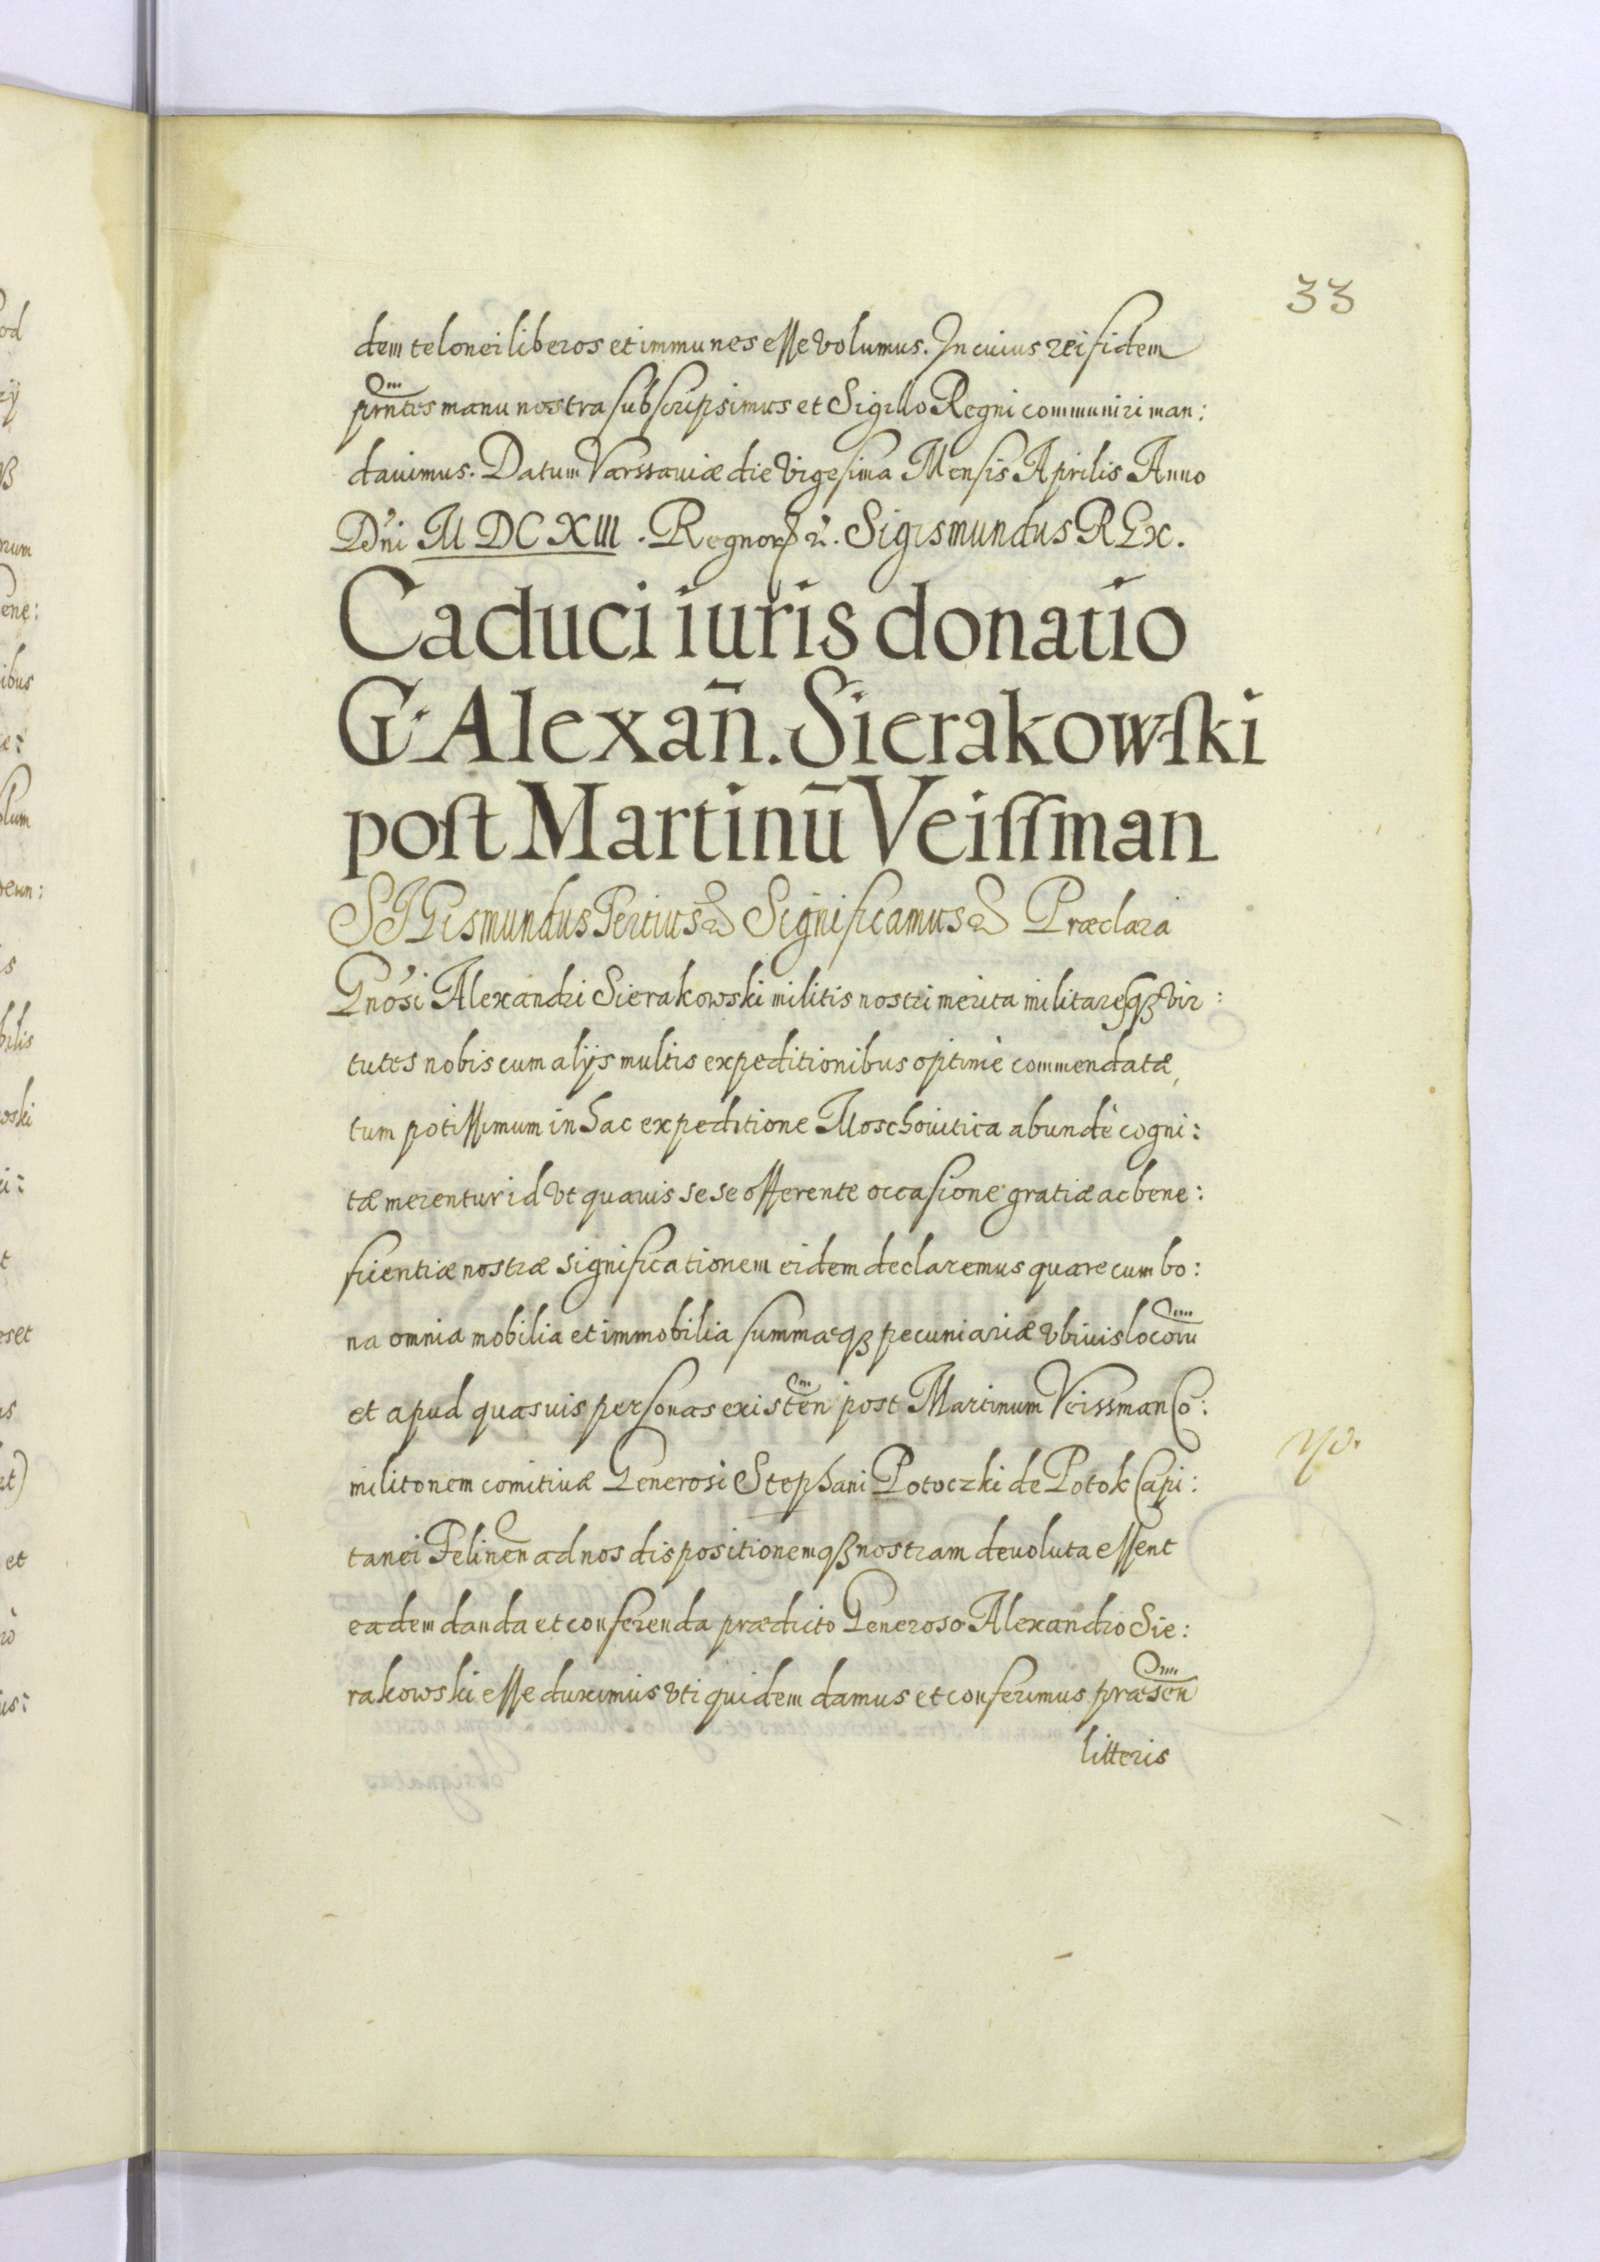 33
dem telonei liberos et immunes esse volumus. In cuius rei fidem
prntes manu nostra subscripsimus et Sigillo Regni communiri man:
dauimus. Datum Varssauiæ die Vigesima Mensis Aprilis Anno
Dni M DC XIII. Regnor. Sigismundus REx.
Caduci iuris donatio
G. Alexan̄. Sierakowski
post Martinū Veissman
SIGismundus Tertius Significamus Præclara
Gnosi Alexandri Sierakowski militis nostri merita militaresqꝫ vir:
tutes nobis cum alijs multis expeditionibus optimè commendatæ,
tum potissimum in hac expeditione Moschouitica abundè cogni:
tæ merentur id vt quauis sese offerente occasione gratiæ ac bene:
ficentiæ nostræ significationem eidem declaremus quare cum bo:
na omnia mobilia et immobilia summæqꝫ pecuniariæ vbiuis locorū
et apud quasuis personas existen̄ post Martinum Veissman Co:
militonem comitiuæ Generosi Stephani Potoczki de Potok Capi:
tanei Felinen̄ ad nos dispositionemqꝫ nostram deuoluta essent
eadem danda et conferenda prædicto Generoso Alexandro Sie:
rakowski esse duximus vti quidem damus et conferimus præsen̄
litteris